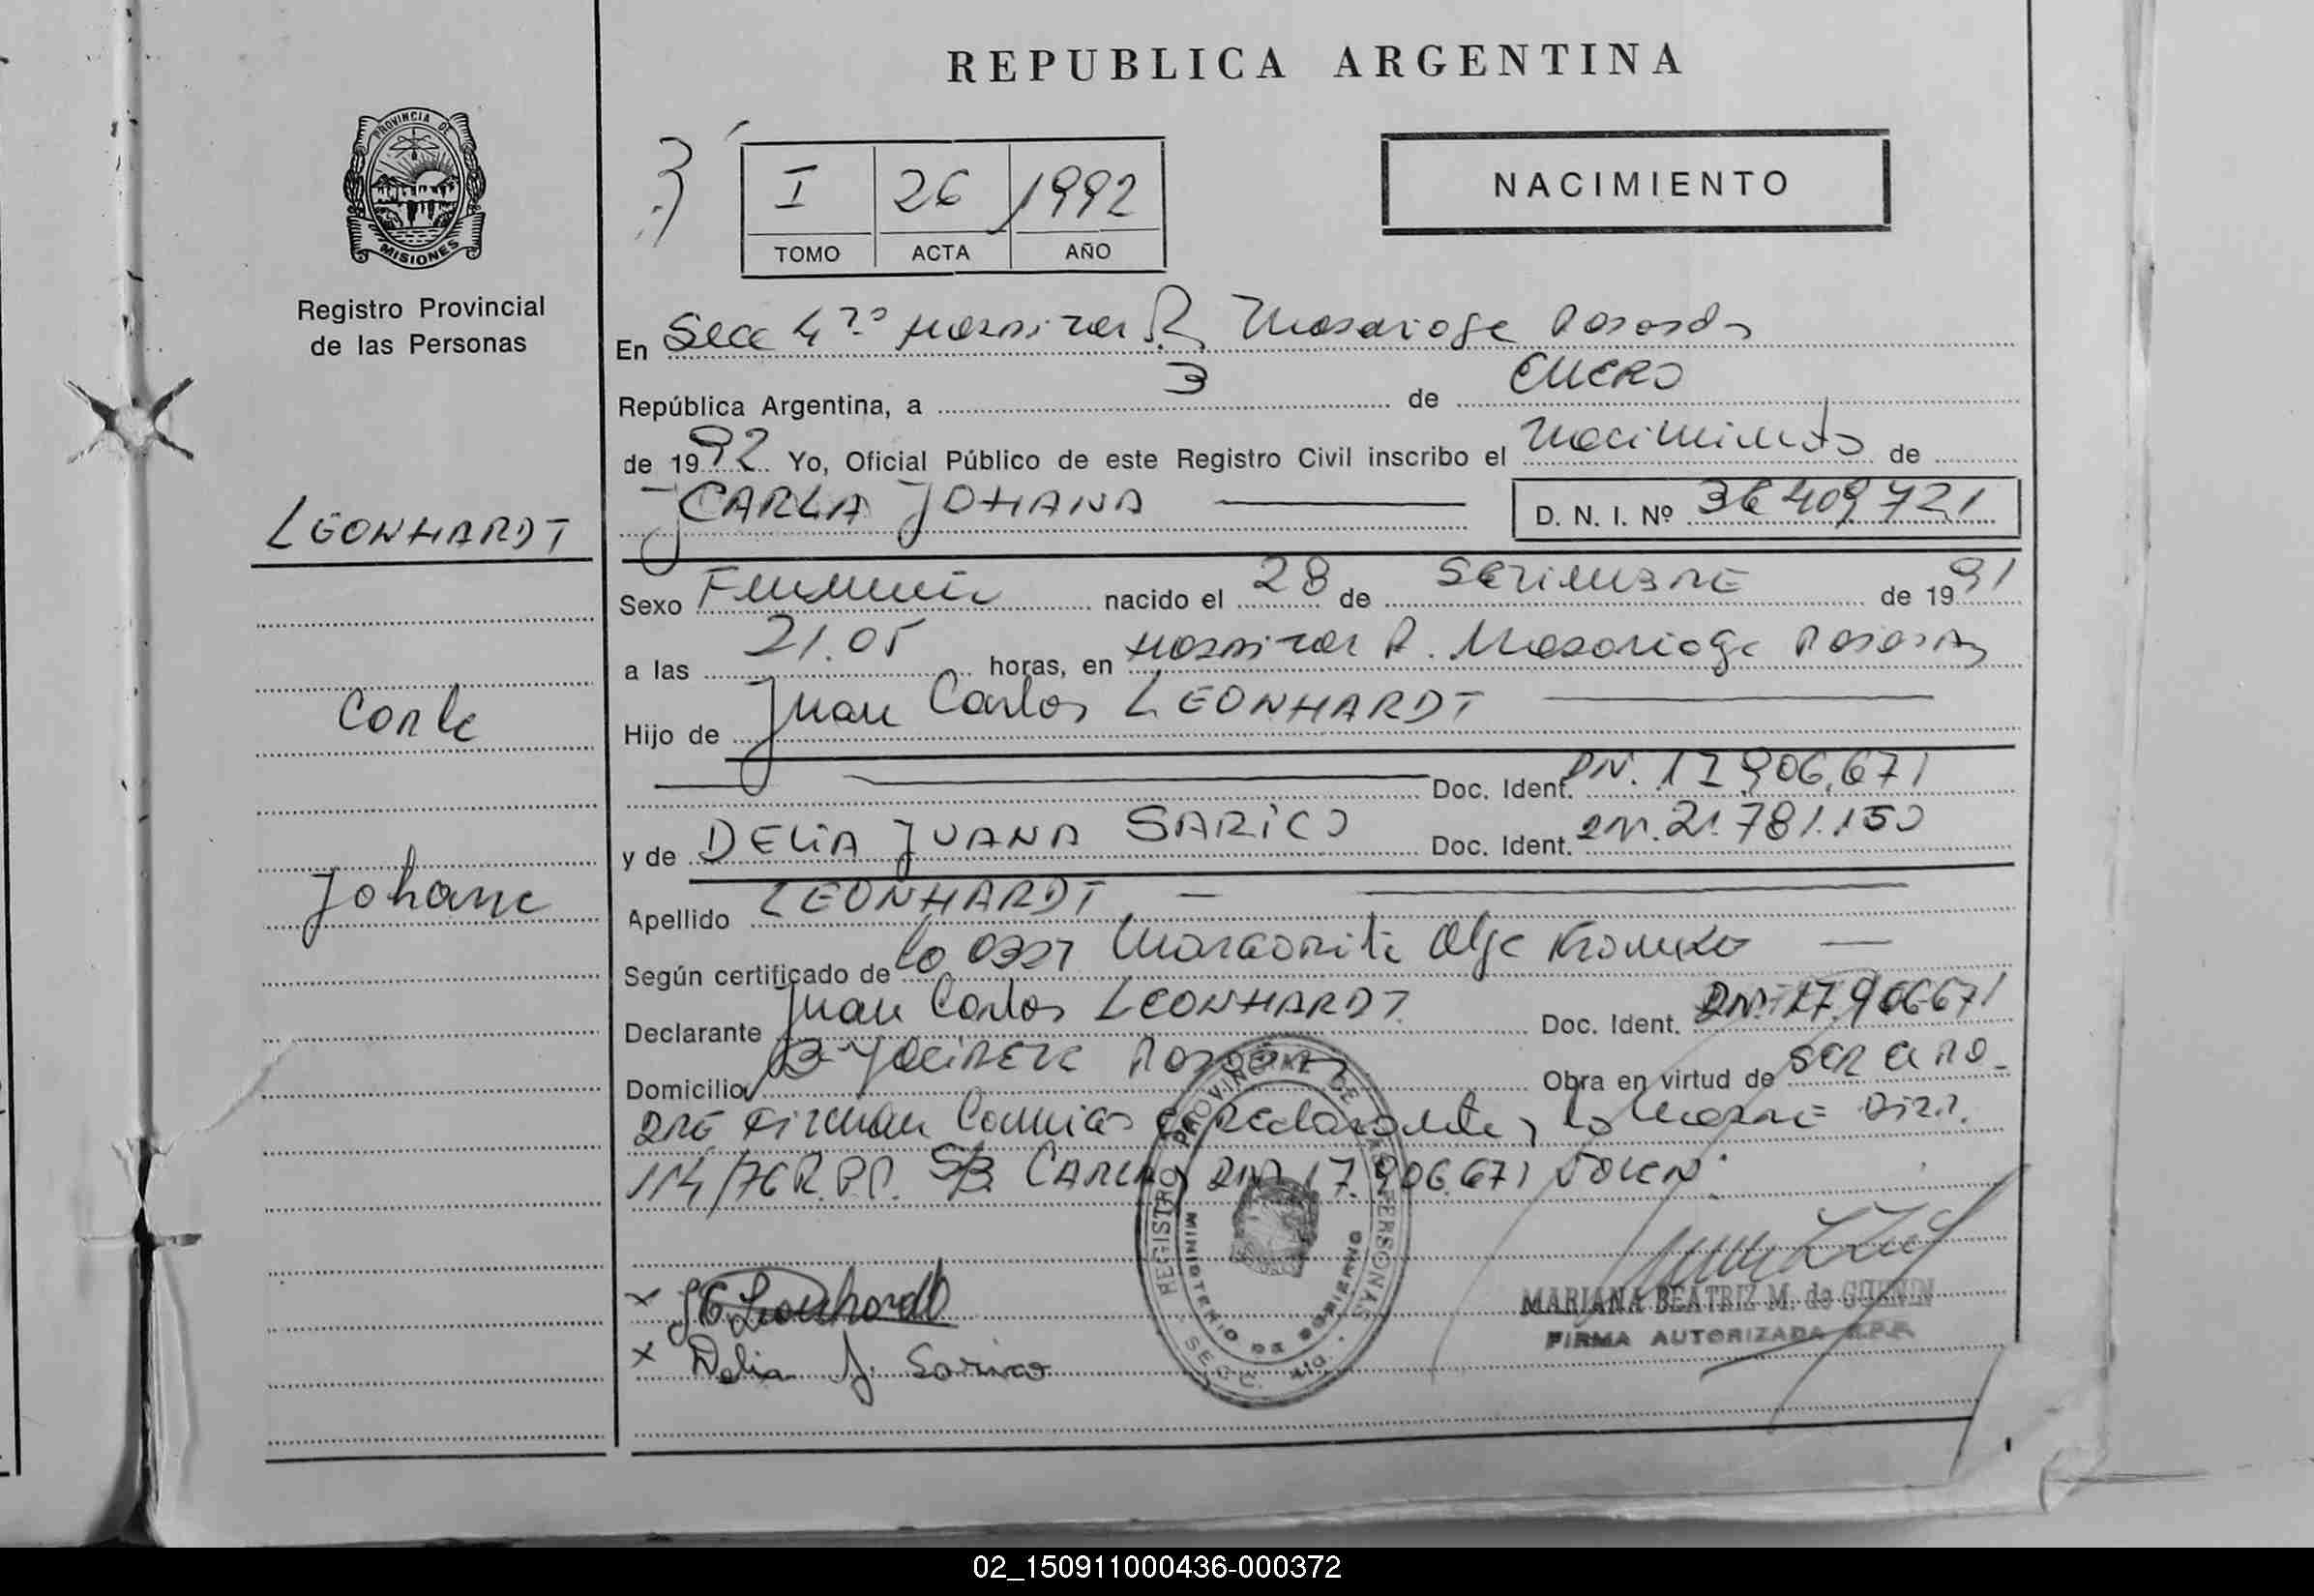 REPUBLICA ARGENTINA
PROVINCIA DE
MISIONES
Registro Provincial
de las Personas
I 26 1992
TOMO ACTA AÑO
NACIMIENTO
En Secc 4ª Hospital R. Madariaga Posadas
República Argentina, a 3 de ENERO
de 1992 Yo, Oficial Público de este Registro Civil inscribo el Nacimiento de
CARLA JOHANA D. N. I. Nº 36409721
LEONHARDT
Sexo Femenino nacido el 28 de SETIEMBRE de 1991
a las 21.05 horas, en Hospital R. Madariaga Posadas
Carla
Hijo de Juan Carlos LEONHARDT
Doc. Ident. DNI. 17.906.671
y de DELIA JUANA SARICO Doc. Ident. DNI. 21.781.150
Johana
Apellido LEONHARDT
Según certificado de la Obst Margarita Olga
Declarante Juan Carlos LEONHARDT Doc. Ident. DNI 17.906671
Domicilio Posadas Obra en virtud de SER el PA-
DRE Firman Conmigo el declarante y la Madre
114/76 R.P.P. S/B. CARLA, DNI 17.906.671 VALEN.
REGISTRO PROVINCIAL DE LAS PERSONAS
MINISTERIO DE GOBIERNO
J C Leonhardt
MARIANA BEATRIZ M. de
FIRMA AUTORIZADA R.P.P.
Delia J. Sarico
02_150911000436-000372